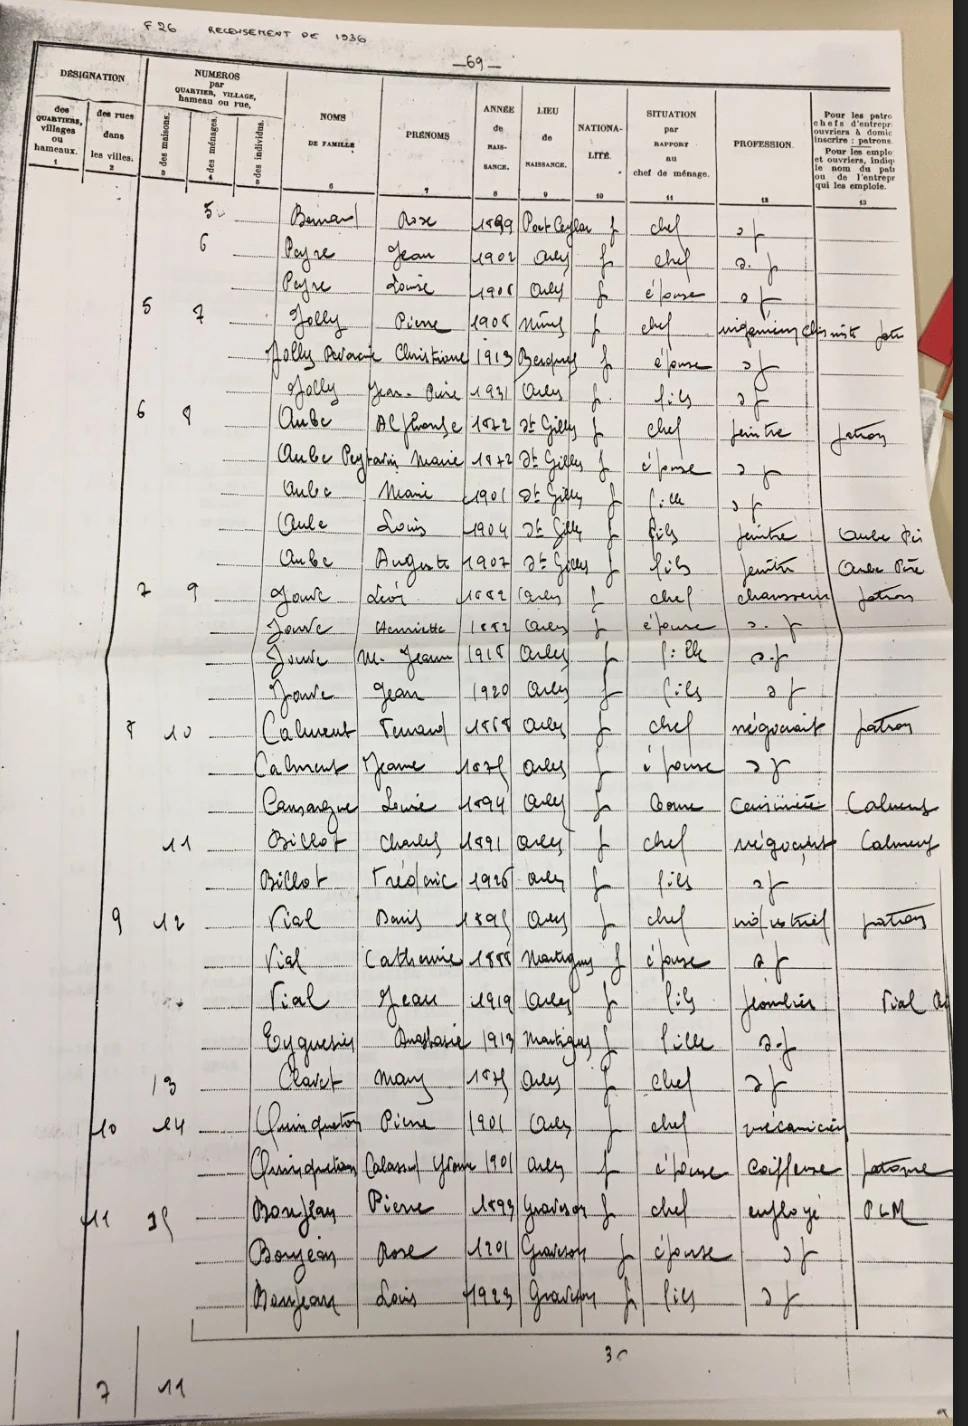 F 26 RECENSEMENT DE 1936
—69—
DÉSIGNATION
des QUARTIERS, villages ou hameaux. 1
des rues dans les villes. 2
NUMÉROS par QUARTIER, VILLAGE, hameau ou rue,
des maisons.
des ménages.
des individus.
NOMS DE FAMILLE 6
PRÉNOMS 7
ANNÉE de NAISSANCE. 8
LIEU de NAISSANCE. 9
NATIONALITÉ. 10
SITUATION par RAPPORT au chef de ménage. 11
PROFESSION. 12
Pour les patro chefs d'entrepr ouvriers à domic inscrire : patrons.
Pour les emplo et ouvriers, indiq le nom du pat ou de l'entrepr qui les emploie. 13
5 Bernard Rose f chef sf
6 Peyre Jean 1902 Arles f chef s.f
Peyre Louise Arles f épouse sf
5 7 Jolly Pierre Nîmes f chef
Jolly Christiane 1913 f épouse sf
Jolly Jean-Pierre 1931 Arles f. fils sf
6 8 Aube Alphonse 1872 St Gilles f chef peintre patron
Aube Marie 1872 St Gilles f épouse sf
Aube Marie 1901 St Gilles f fille sf
Aube Louis 1904 St Gilles f fils peintre Aube
Aube Auguste 1907 St Gilles f fils peintre Aube Père
7 9 Jouve Léon 1882 Arles f chef chausseur patron
Jouve Henriette 1882 Arles f épouse s.f
Jouve M. Jeanne Arles f fille s.f
Jouve Jean 1920 Arles f fils sf
8 10 Calment Fernand 1868 Arles f chef négociant patron
Calment Jeanne 1875 Arles f épouse sf
Camargue Louise 1894 Arles f bonne cuisinière Calment
11 Billot Charles 1891 Arles f chef négociant Calment
Billot Frédéric 1926 Arles f fils sf
9 12 Vial Denis 1895 Arles f chef industriel patron
Vial Catherine 1888 Martigues f épouse sf
Vial Jean 1919 Arles f fils plombier Vial
Anastasie 1913 Martigues f fille s.f
13 Clavet Mary 1875 Arles f chef sf
10 14 Quinqueton Pierre 1901 Arles f chef mécanicien
Quinqueton Yvonne 1901 Arles f épouse coiffeuse patronne
11 15 Bonjean Pierre 1893 Graveson f chef employé PLM
Bonjean Rose 1901 Graveson f épouse sf
Bonjean Louis 1923 Graveson f fils sf
30
7 11